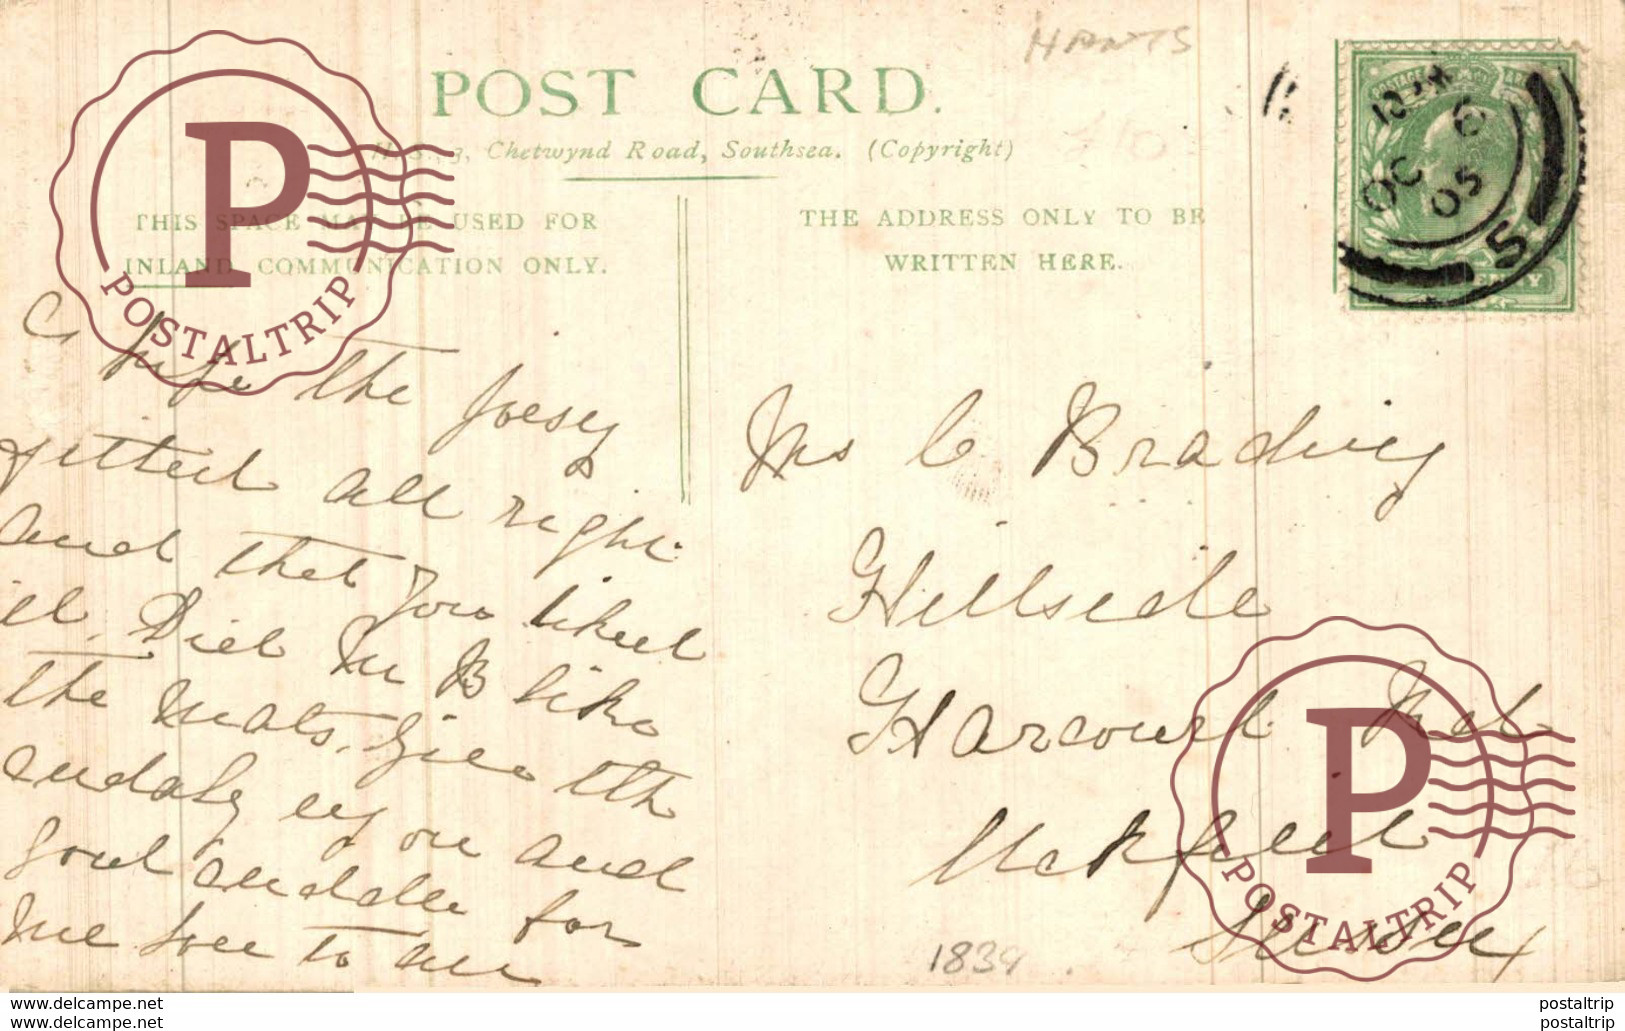 HANTS
POST CARD.
H. S., 3, Chetwynd Road, Southsea. (Copyright)
THIS SPACE MAY BE USED FOR
INLAND COMMUNICATION ONLY.
THE ADDRESS ONLY TO BE
WRITTEN HERE.
10 PM
OC 6
05
S
POSTALTRIP
P
I hope the Joesey
fitted all right
and that you liked
it. Did Mr B like
the mats. Give
and
and for
me love to all
Mrs C Brading
Hillside
Harcourt Rd
Uckfield
Sussex
P
POSTALTRIP
1839
www.delcampe.net
postaltrip
www.delcampe.net
postaltrip